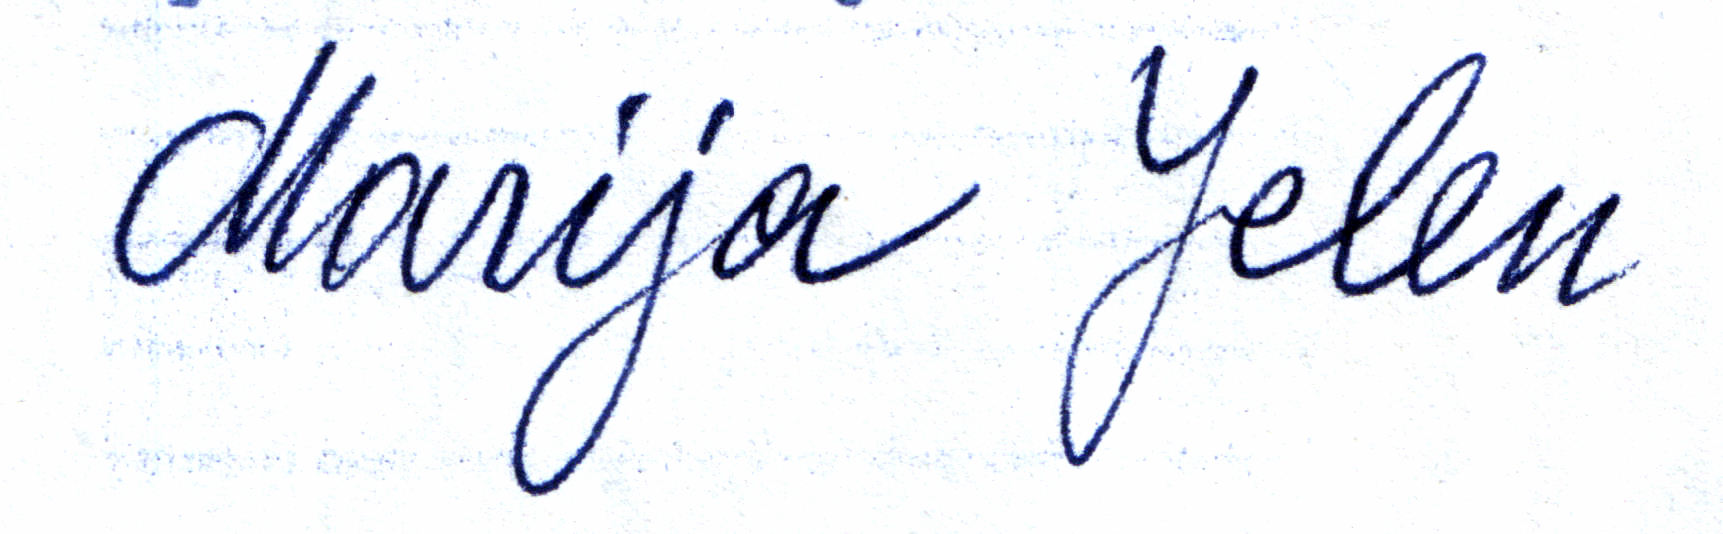 Marija Jelen